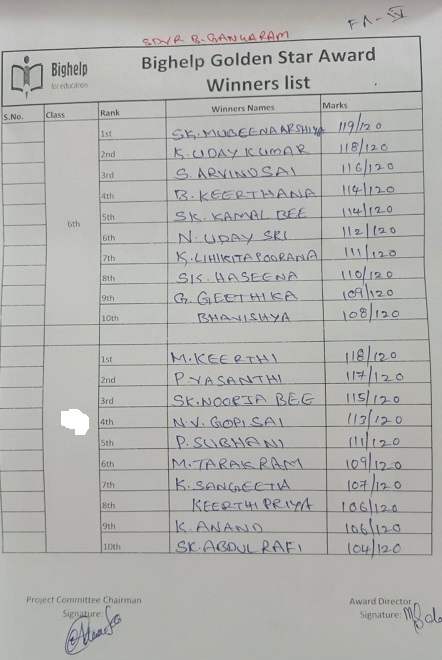 FA-IV
SDVR B. GANGARAM
Bighelp
for education
Bighelp Golden Star Award
Winners list
S.No. Class Rank Winners Names Marks
6th
1st SK. MUBEENA ARSHIYA 119/120
2nd K. UDAY KUMAR 118/120
3rd S. ARVIND SAI 116/120
4th B. KEERTHANA 114/120
5th SK. KAMAL BEE 114/120
6th N. UDAY SRI 112/120
7th K. LIHIKITA POORANA 111/120
8th SK. HASEENA 110/120
9th G. GEETHIKA 109/120
10th BHAVISHYA 108/120
1st M. KEERTHI 118/120
2nd P. VASANTHI 117/120
3rd SK. NOORJA BEG 115/120
4th N.V. GOPI SAI 113/120
5th P. SUBHANI 111/120
6th M. TARAK RAM 109/120
7th K. SANGEETA 107/120
8th KEERTHI PRIYA 106/120
9th K. ANAND 106/120
10th SK. ABDUL RAFI 104/120
Project Committee Chairman
Signature:
Award Director
Signature: